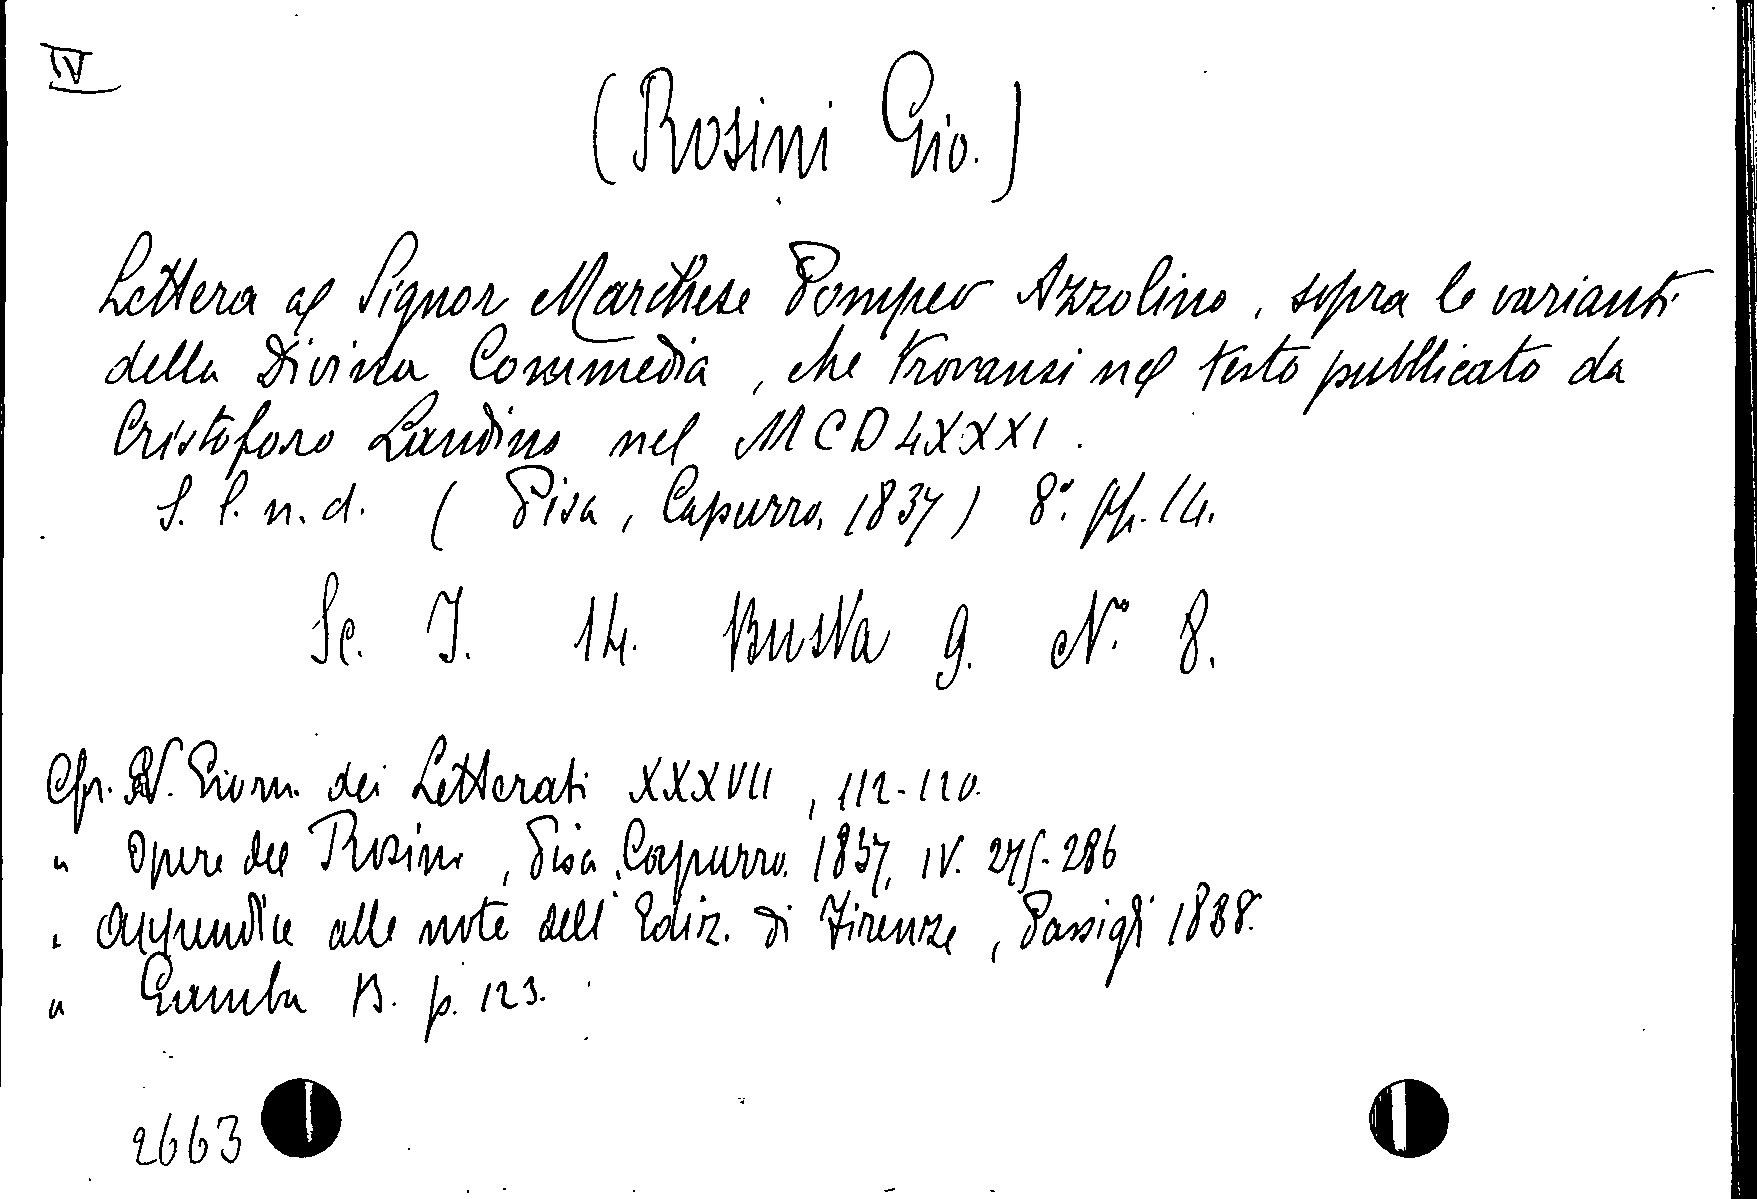 IV
(Rosini Gio.)
Lettera al Signor Marchese Pompeo Azzolino, sopra le varianti
della Divina Commedia, che trovansi nel testo pubblicato da
Cristoforo Landino nel MCDLXXXI.
S. l. n. d. (Pisa, Capurro, 1837) 8° pp. 14.
Sc. I. 14. Busta 9. N° 8.
Cfr. N. Giorn. dei Letterati XXXVII, 112-120.
" Opere del Rosini, Pisa, Capurro. 1837, IV. 275-286
" Appendice alle note dell'Ediz. di Firenze, Passigli 1838.
" Gamba B. p. 123.
2663